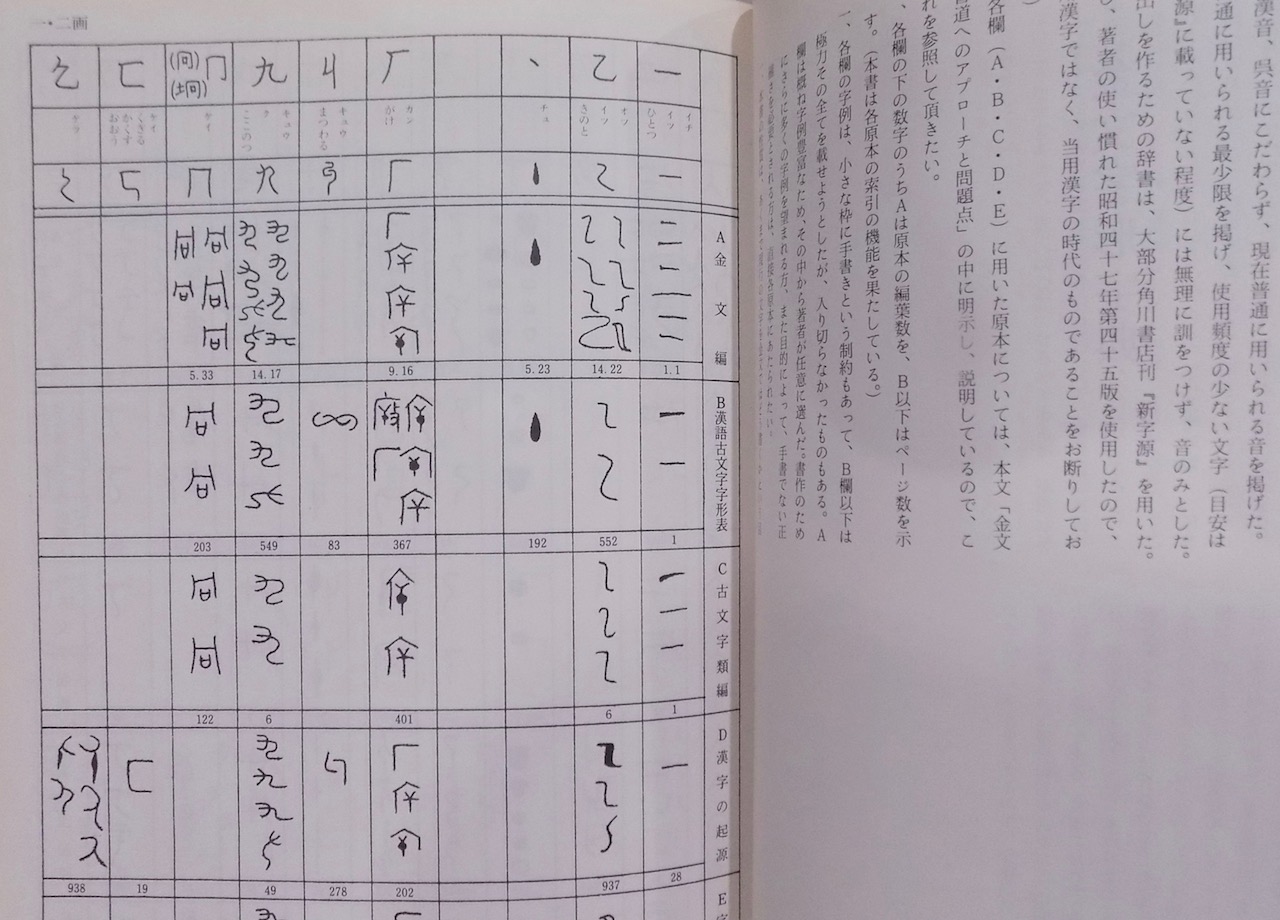 漢音、呉音にこだわらず、現在普通に用いられる音を掲げた。
通に用いられる最少限を掲げ、使用頻度の少ない文字(目安は
源』に載っていない程度)には無理に訓をつけず、音のみとした。
出しを作るための辞書は、大部分角川書店刊『新字源』を用いた。
、著者の使い慣れた昭和四十七年第四十五版を使用したので、
漢字ではなく、当用漢字の時代のものであることをお断りしてお
)
各欄(A・B・C・D・E)に用いた原本については、本文「金文
書道へのアプローチと問題点」の中に明示し、説明しているので、こ
れを参照して頂きたい。
、各欄の下の数字のうちAは原本の編葉数を、B以下はページ数を示
す。(本書は各原本の索引の機能を果たしている。)
一、各欄の字例は、小さな枠に手書きという制約もあって、B欄以下は
極力その全てを載せようとしたが、入り切らなかったものもある。A
欄は概ね字例豊富なため、その中から著者が任意に選んだ。書作のため
にさらに多くの字例を望まれる方、また目的によって、手書でない正
一・二画
一
イチ
イツ
ひとつ
一
乙
オツ
イツ
きのと
丶
チュ
厂
カン
がけ
丩
キュウ
まつわる
九
キュウ
ク
ここのつ
冂
(冋)
(坰)
ケイ
匸
ケイ
くぎる
かくす
おおう
A金文編
1.1
14.22
5.23
9.16
14.17
5.33
B漢語古文字字形表
1
552
192
367
83
549
203
C古文字類編
1
6
401
6
122
D漢字の起源
28
937
202
278
49
19
938
E字